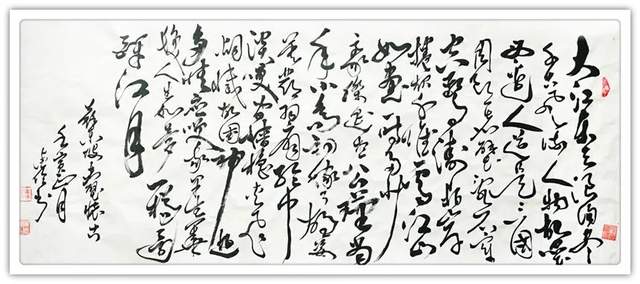 大江东去浪淘尽
千古风流人物故垒
西边人道是三国
周郎赤壁乱石穿
空惊涛拍岸
捲起千堆雪江山
如画一时多少
豪傑遥想公瑾当
年小乔初嫁了雄姿
英发羽扇纶巾
谈笑间樯橹灰飞
烟灭故国神游
多情应笑我早生华
发人生如梦一尊还
酹江月
苏东坡赤壁怀古
壬寅正月
书